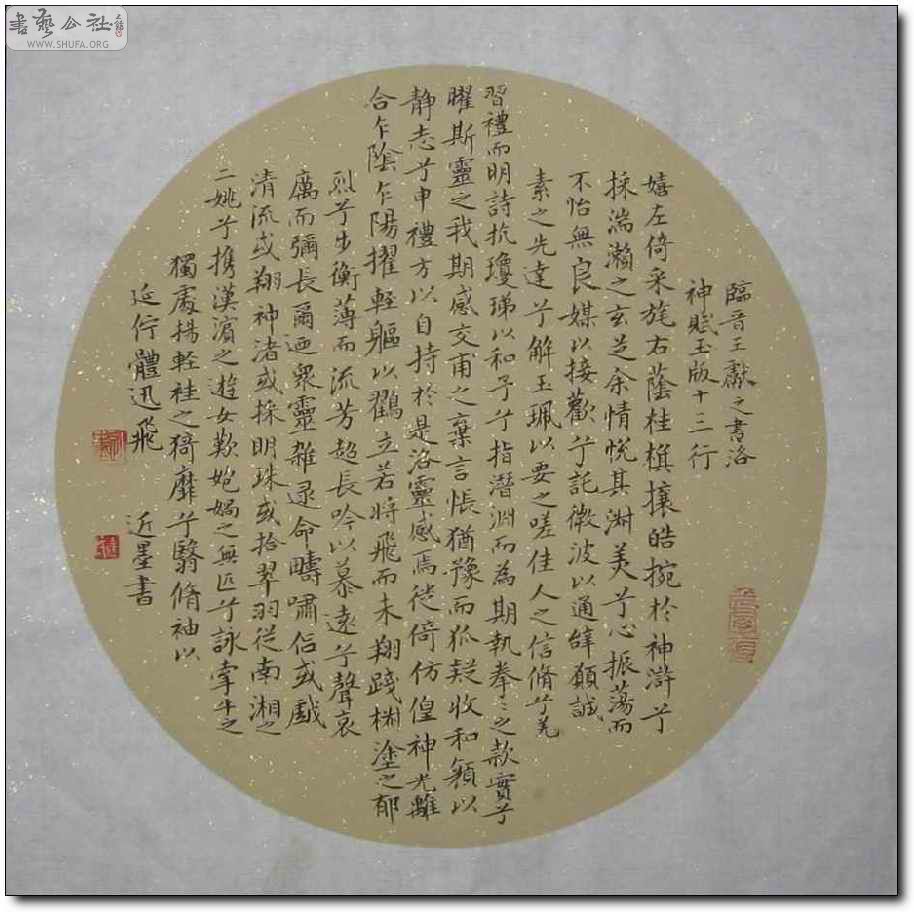 書藝公社
WWW.SHUFA.ORG
臨晉王獻之書洛
神賦玉版十三行
嬉左倚采旄右蔭桂旗攘皓捥於神滸兮
採湍瀨之玄芝余情悅其淑美兮心振蕩而
不怡無良媒以接歡兮託微波以通辭願誠
素之先達兮解玉珮以要之嗟佳人之信脩兮羌
習禮而明詩抗瓊珶以和予兮指潛淵而為期執拳〻之款實兮
曜斯靈之我期感交甫之棄言悵猶豫而狐疑收和顏以
静志兮申禮方以自持於是洛靈感焉徙倚仿偟神光離
合乍陰乍陽擢輕軀以鶴立若將飛而未翔踐椒塗之郁
烈兮步衡薄而流芳超長吟以慕遠兮聲哀
厲而彌長爾迺衆靈雜遝命疇嘯侶或戲
清流或翔神渚或採明珠或拾翠羽從南湘之
二姚兮攜漢濱之遊女歎匏媧之無匹兮詠牽牛之
獨處揚輕袿之猗靡兮翳脩袖以
延佇體迅飛
近墨書